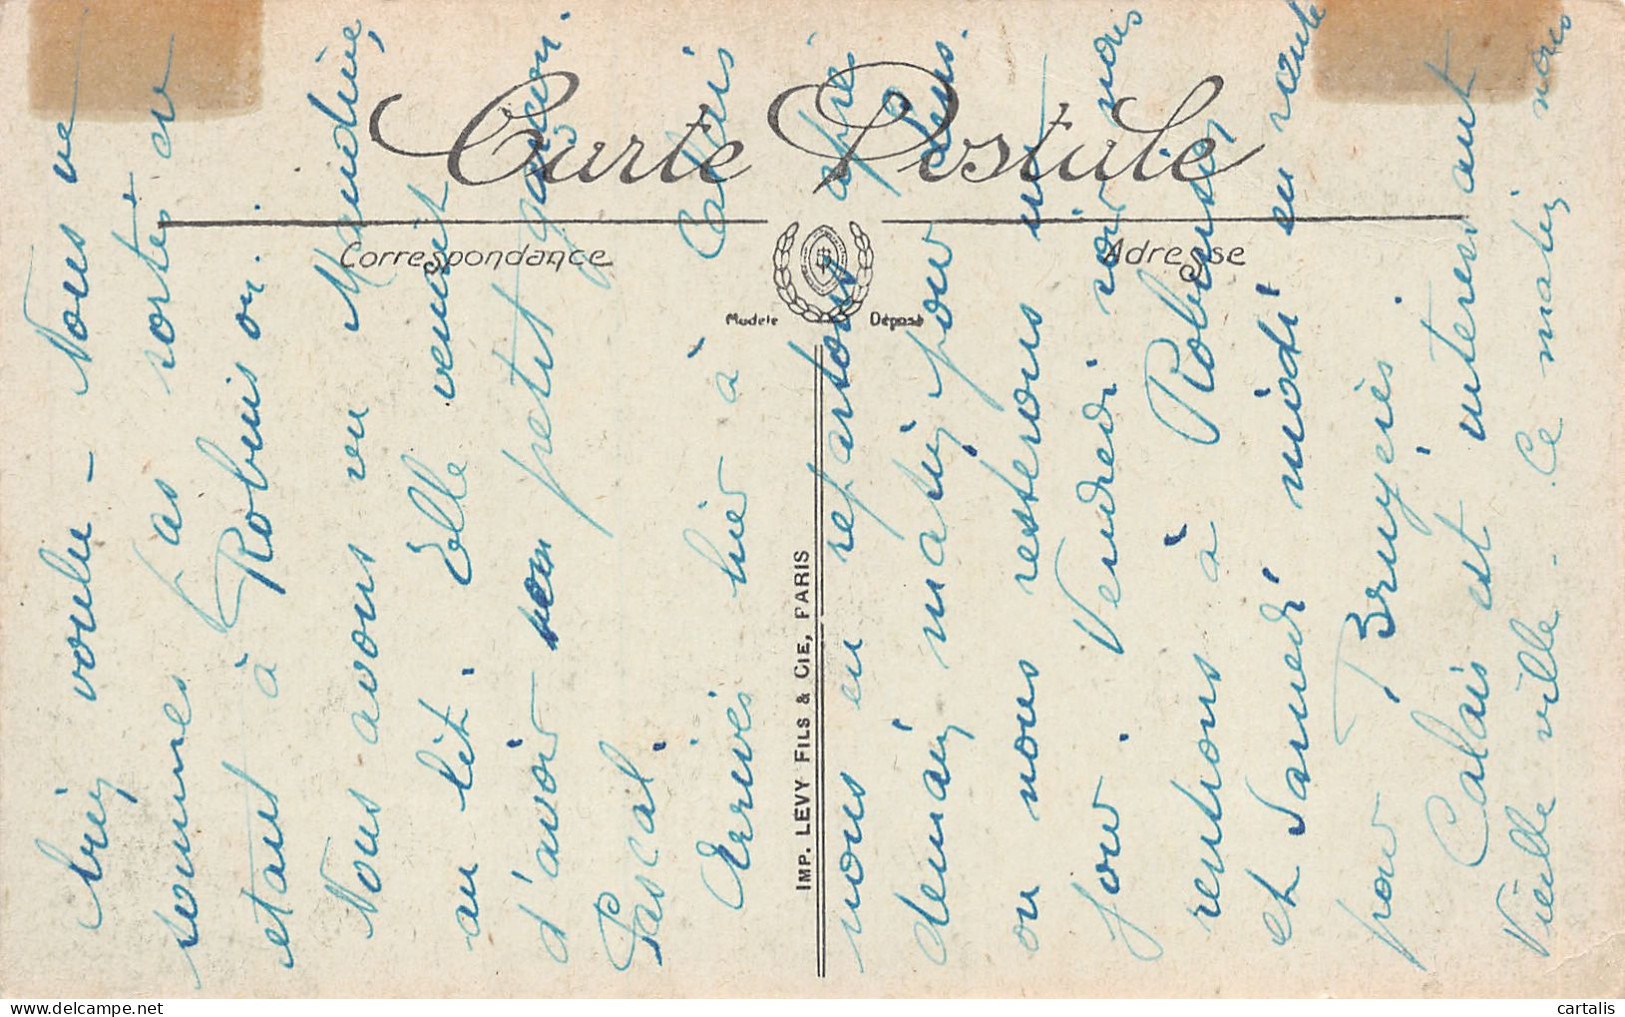 Carte Postale
Correspondance
Adresse
Modèle Déposé
IMP. LEVY FILS & CIE, PARIS
bien voulu - Nous ne
sommes pas sortés en
étant à Robinson.
Nous avons vu Maudine,
au lit. Elle venait
d'avoir son petit garçon.
Pascal.
Arrivés hier à Calais
nous en repartons après
demain matin pour Lens.
où nous resterons un
jour. Vendredi soir nous
rentrons à Robinson
et Samedi midi en route
pour Bruyères
Calais est intéressant
Vieille ville. Ce matin nous
cartalis